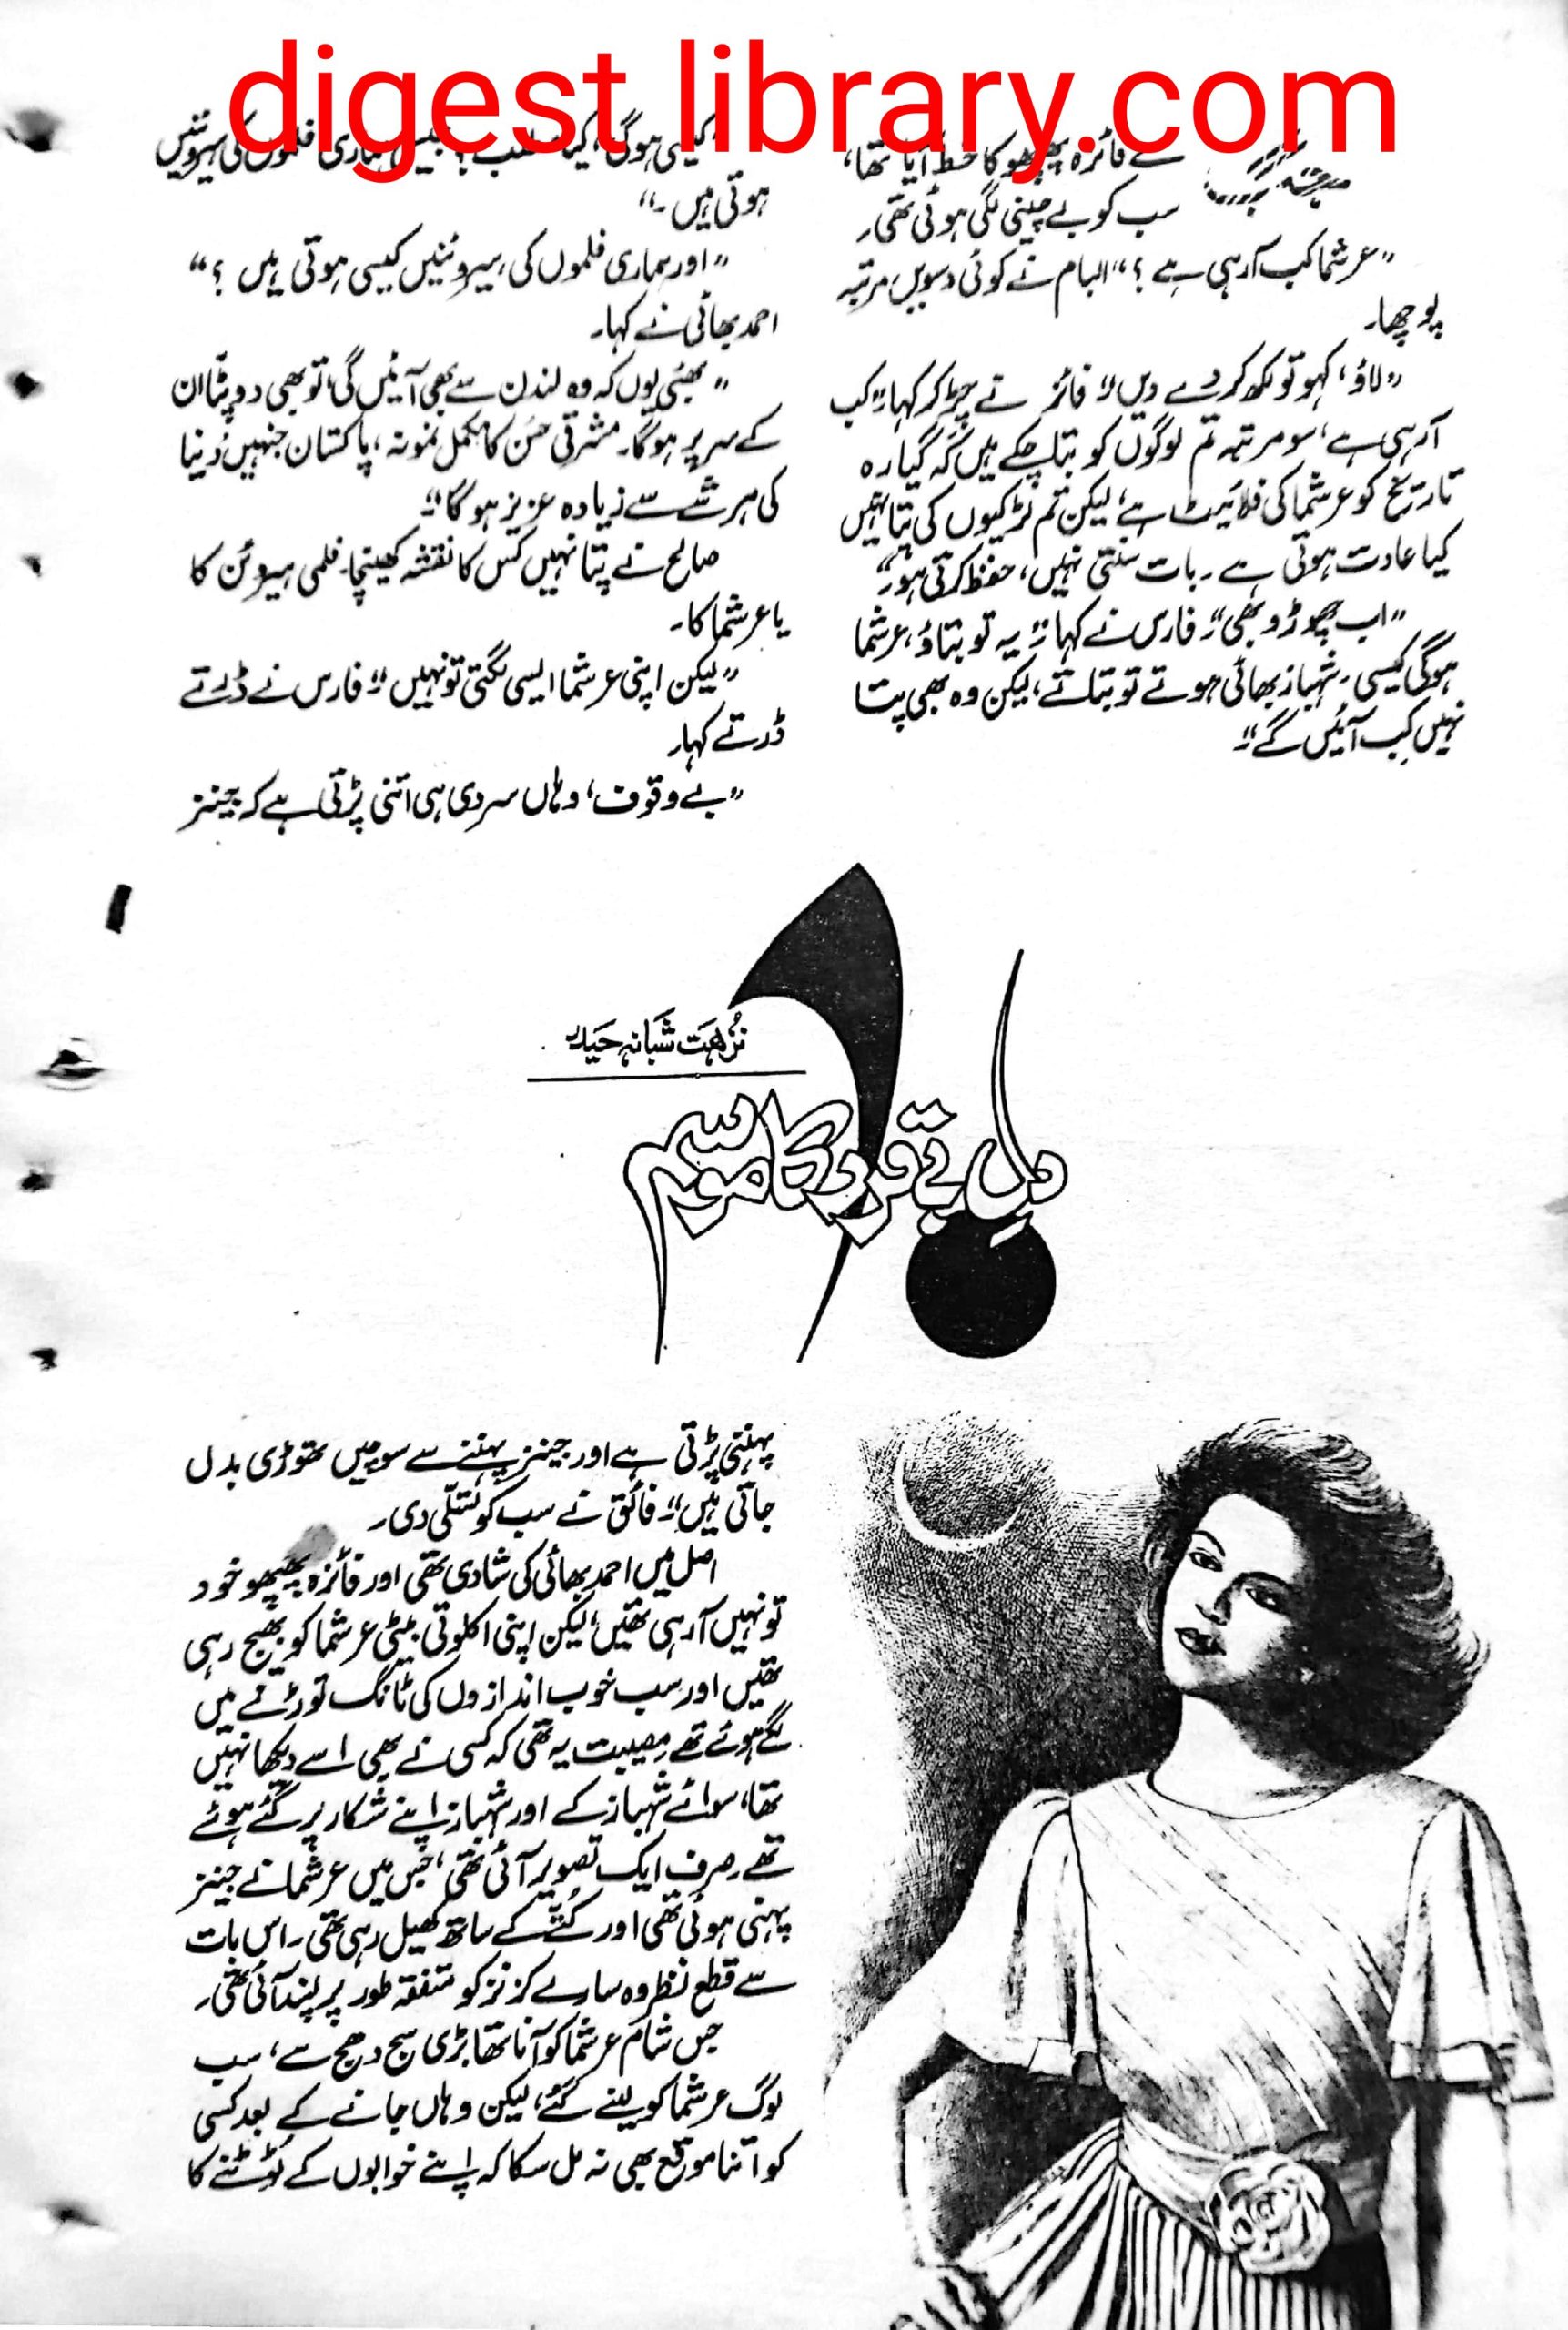 digest library.com
سے فائزہ پھپھو کا خط آیا تھا،
سب کو بے چینی لگی ہوئی تھی۔
”عرشما کب آ رہی ہے؟“ الہام نے کوئی دسویں مرتبہ
پوچھا۔
”لاؤ، کہو تو لکھ کر دے دیں“ فائز نے چڑ کر کہا ”کب
آ رہی ہے، سو مرتبہ تم لوگوں کو بتا چکے ہیں کہ گیارہ
تاریخ کو عرشما کی فلائیٹ ہے، لیکن تم لڑکیوں کی پتا نہیں
کیا عادت ہوتی ہے۔ بات سنتی نہیں، حفظ کرتی ہو۔“
”اب چھوڑو بھی“ فارس نے کہا ”یہ تو بتاؤ، عرشما
ہوگی کیسی۔ شہباز بھائی ہوتے تو بتاتے، لیکن وہ بھی پتا
نہیں کب آئیں گے“
”کیسی ہوگی، کیا مطلب؟ جیسی ہماری فلموں کی ہیروئنیں
ہوتی ہیں۔“
”اور ہماری فلموں کی ہیروئنیں کیسی ہوتی ہیں؟“
احمد بھائی نے کہا۔
”بھئی یوں کہ وہ لندن سے بھی آئیں گی، تو بھی دوپٹا ان
کے سر پر ہوگا۔ مشرقی حسن کا مکمل نمونہ، پاکستان جنہیں دنیا
کی ہر شے سے زیادہ عزیز ہوگا“
صالح نے پتا نہیں کس کا نقشہ کھینچا۔ فلمی ہیروئن کا
یا عرشما کا۔
”لیکن اپنی عرشما ایسی لگتی تو نہیں“ فارس نے ڈرتے
ڈرتے کہا۔
”بے وقوف، وہاں سردی ہی اتنی پڑتی ہے کہ جینز
نزہت شبانہ حیدر
دل بے قرار کا موسم
پہننی پڑتی ہے اور جینز پہننے سے سوچیں تھوڑی بدل
جاتی ہیں“ فائق نے سب کو تسلّی دی۔
اصل میں احمد بھائی کی شادی تھی اور فائزہ پھپھو خود
تو نہیں آ رہی تھیں، لیکن اپنی اکلوتی بیٹی عرشما کو بھیج رہی
تھیں اور سب خوب اندازوں کی ٹانگ توڑنے میں
لگے ہوئے تھے۔ مصیبت یہ تھی کہ کسی نے بھی اسے دیکھا نہیں
تھا، سوائے شہباز کے اور شہباز اپنے شکار پر گئے ہوئے
تھے۔ صرف ایک تصویر آئی تھی، جس میں عرشما نے جینز
پہنی ہوئی تھی اور کتّے کے ساتھ کھیل رہی تھی۔ اس بات
سے قطع نظر وہ سارے کزنز کو متفقہ طور پر پسند آئی تھی۔
جس شام عرشما کو آنا تھا بڑی سج دھج سے، سب
لوگ عرشما کو لینے گئے، لیکن وہاں جانے کے بعد کسی
کو اتنا موقع بھی نہ مل سکا کہ اپنے خوابوں کے ٹوٹنے کا